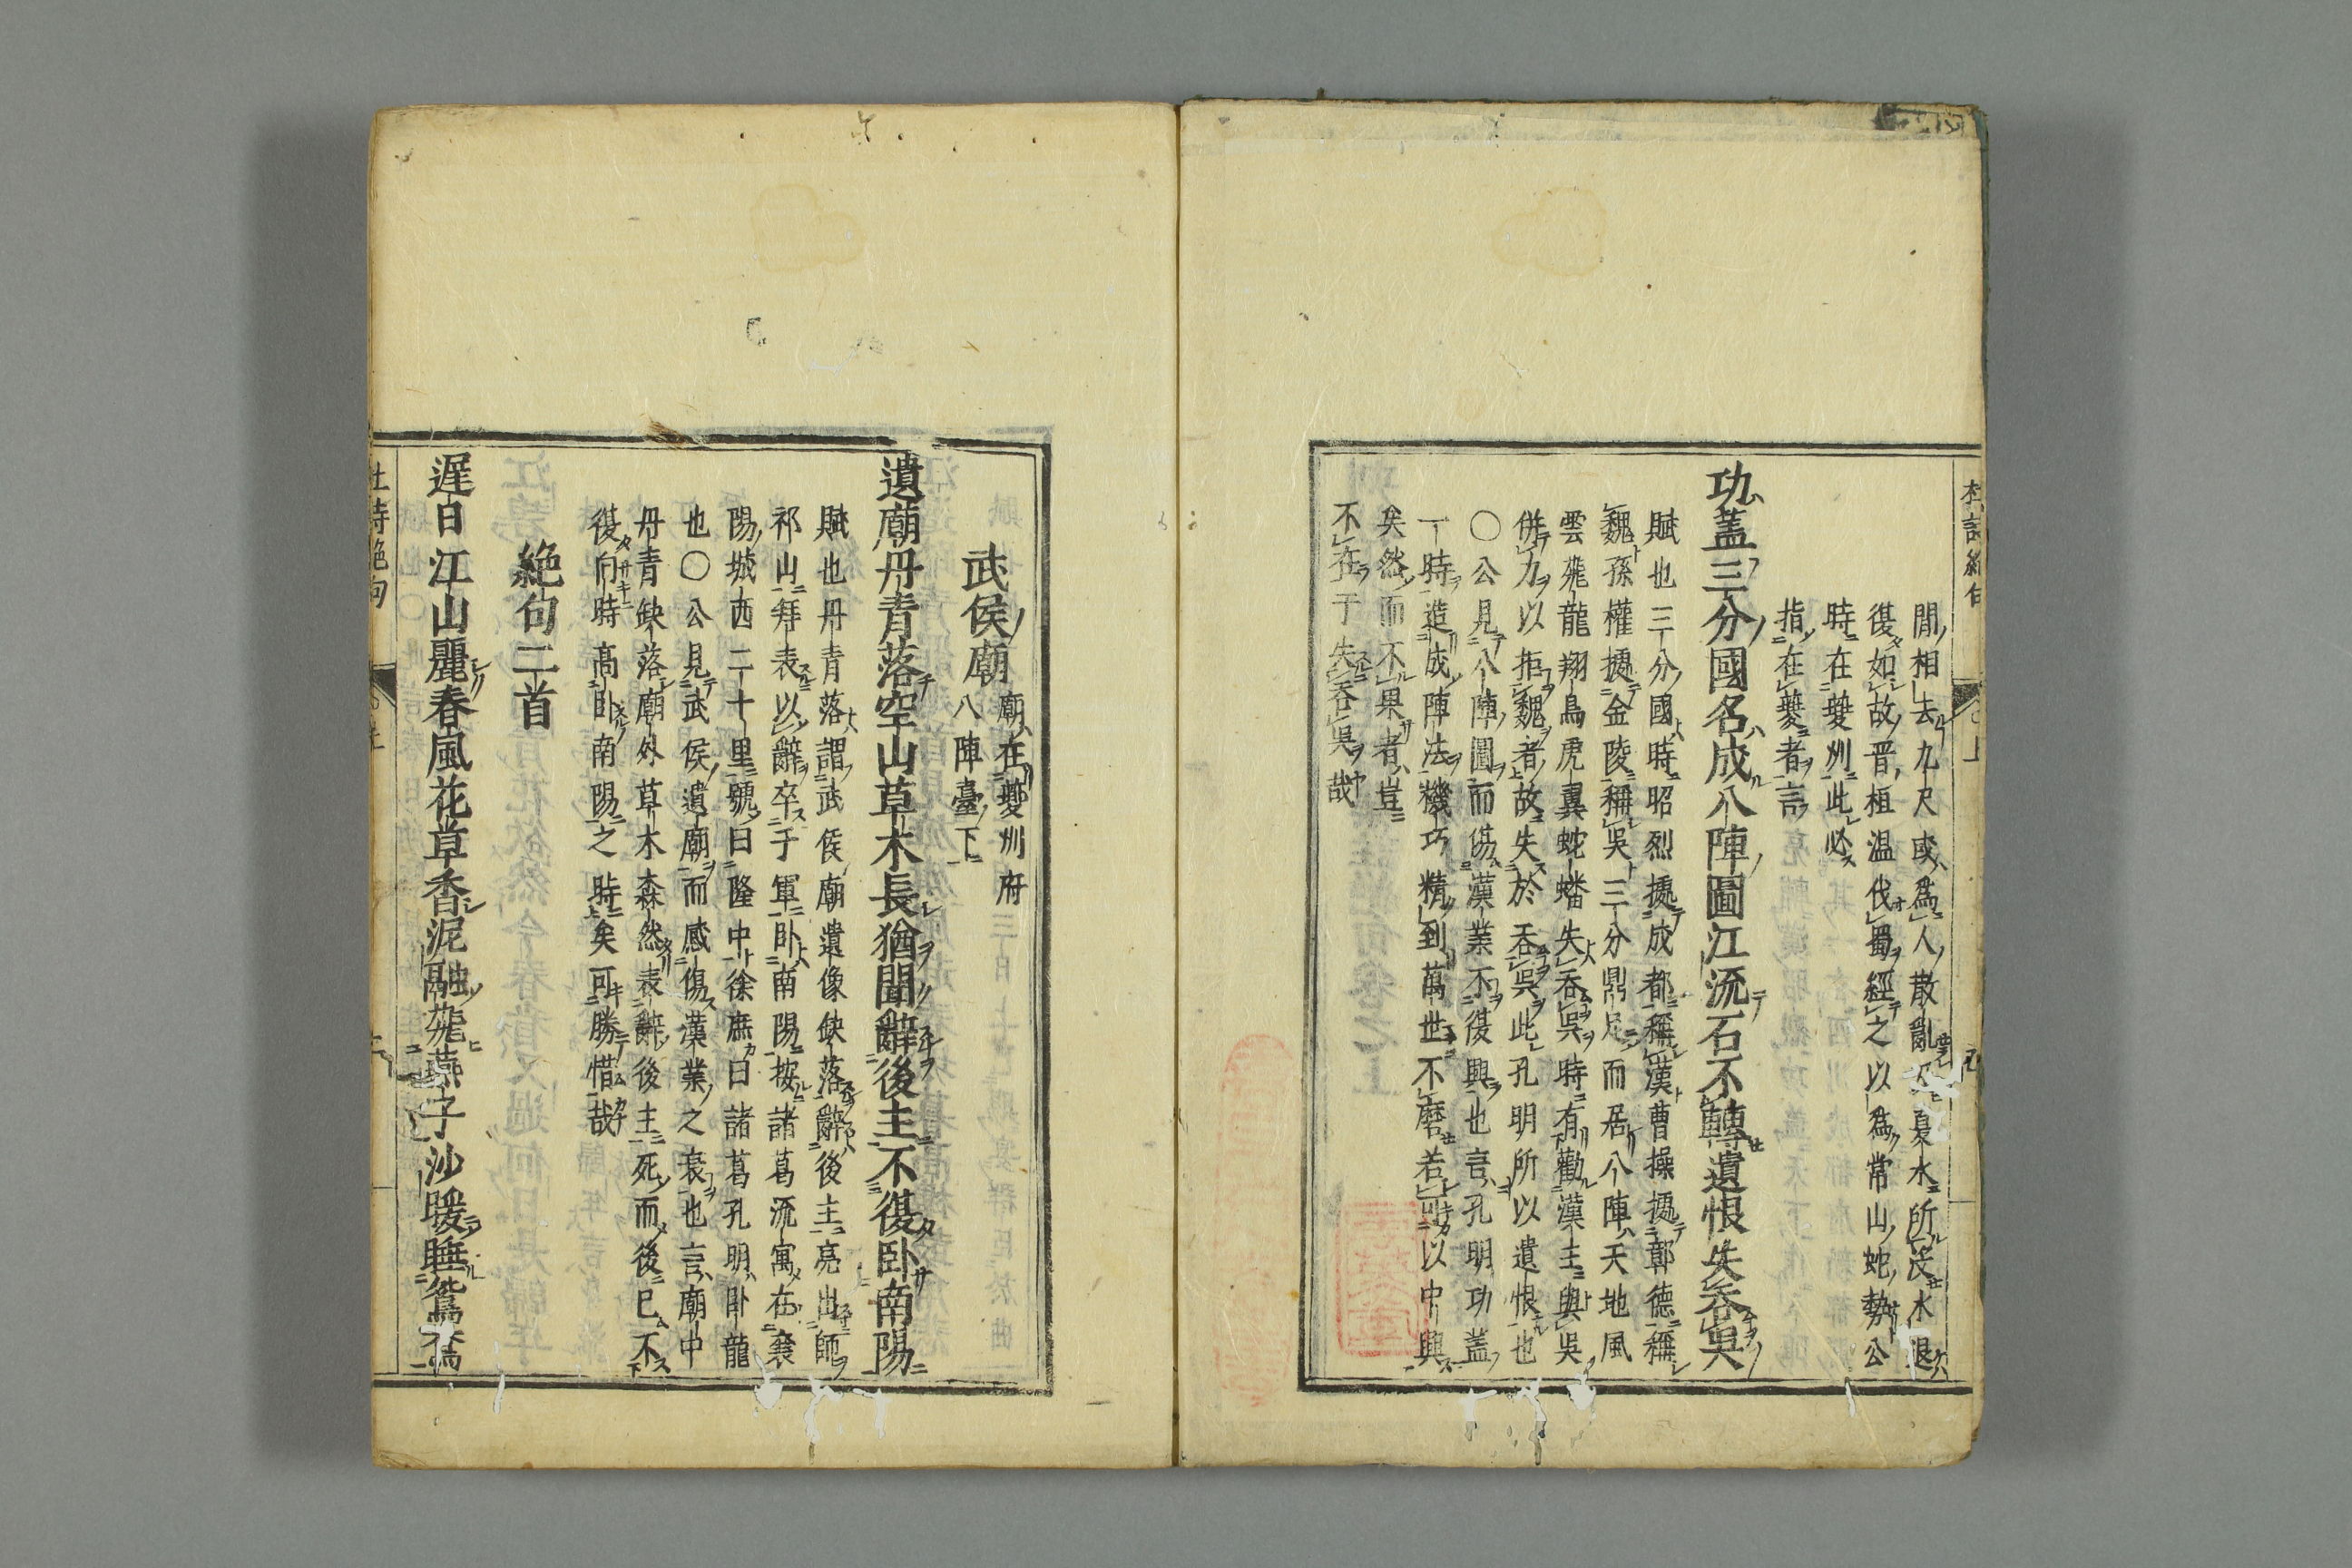 間相去九尺或爲人散亂及夏水所没水退
復如故晋桓温伐蜀經之以爲常山蛇勢公
時在夔州此必
指在夔者言
功蓋三分國名成八陣圖江流石不轉遺恨失吞吳
賦也三分國時昭烈據成都稱漢曹操據鄴德稱
魏孫權據金陵稱吳三分鼎足而居八陣天地風
雲飛龍翔鳥虎翼蛇蟠失吞吳時有勸漢主與吳
併力以拒魏者故失於吞吳此孔明所以遺恨也
〇公見八陣圖而傷漢業不復興也言孔明功蓋
一時造成陣法機巧精到萬世不磨若可以中興
矣然而不果者豈
不在于失吞吳哉
武侯廟 廟在夔州府
八陣臺下
遺廟丹青落空山草木長猶聞辭後主不復臥南陽
賦也丹青落謂武侯廟遺像缺落辭後主亮出師
祁山拜表以辭卒于軍臥南陽按諸葛流寓在襄
陽城西二十里號曰隆中徐庶曰諸葛孔明臥龍
也〇公見武侯遺廟而感傷漢業之衰也言廟中
丹青缺落廟外草木森然表辭後主死而後已不
復向時高臥南陽之時矣可勝惜哉
絶句二首
遲日江山麗春風花草香泥融飛燕子沙暖睡鴛鴦